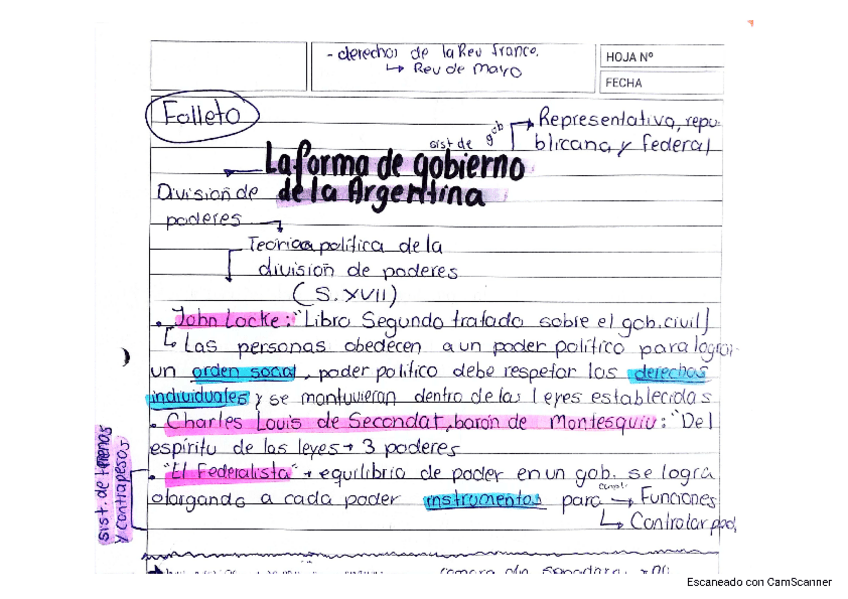 - derechos de la Rev franco.
↳ Rev de Mayo
HOJA Nº
FECHA
Folleto
sist de gob → Representativa, repu-
blicana y federal
La forma de gobierno
de la Argentina
División de
poderes
Teoria política de la
división de poderes
(S. XVII)
• John Locke: "Libro Segundo tratado sobre el gob. civil)
↳ Las personas obedecen a un poder político para lograr
un orden social, poder político debe respetar los derechos
individuales y se mantuvieran dentro de las leyes establecidas
• Charles Louis de Secondat, barón de Montesquiu: "Del
espíritu de las leyes → 3 poderes
• "El Federalista" → equilibrio de poder en un gob. se logra
otorgando a cada poder instrumentos para cumpl. → Funciones
↳ Controlar pod.
sist. de frenos
y contrapesos
Escaneado con CamScanner